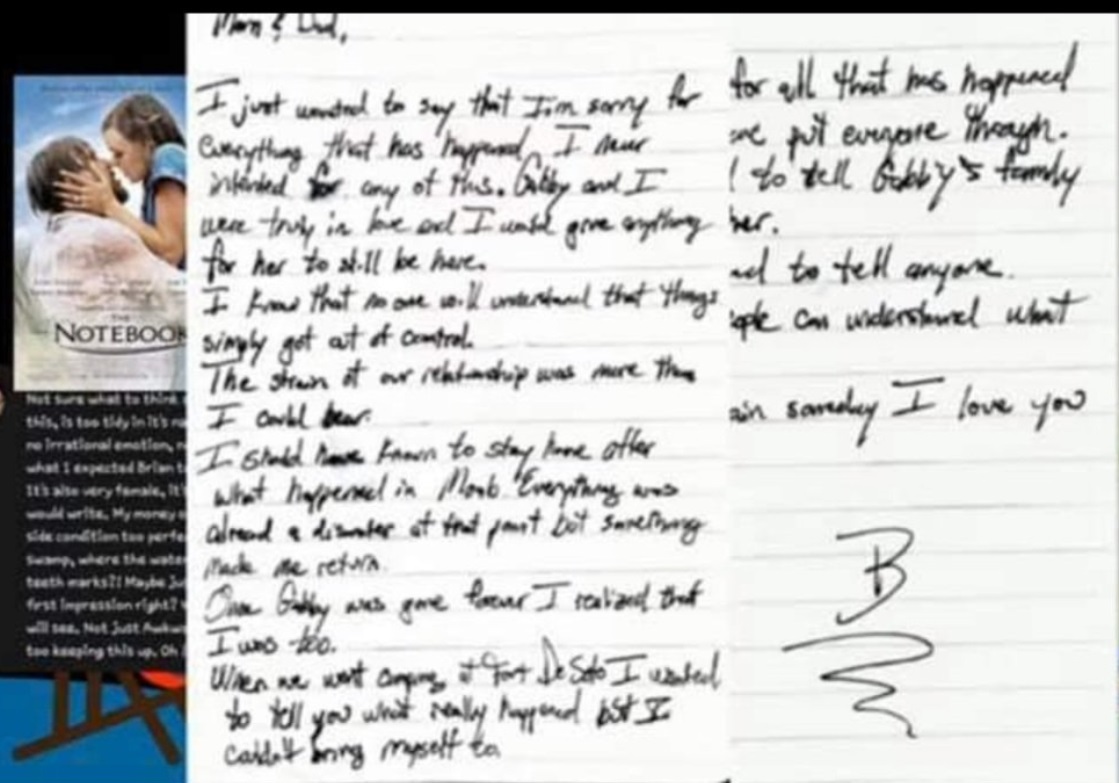 Mom & Dad,
I just wanted to say that I'm sorry for
everything that has happened. I never
intended for any of this. Gabby and I
were truly in love and I would give anything
for her to still be here.
I know that no one will understand that things
simply got out of control.
The strain of our relationship was more than
I could bear.
I should have known to stay home after
what happened in Moab. Everything was
alread a disaster at that point but something
made me return.
Once Gabby was gone forever I realized that
I was too.
When we went camping at Fort De Soto I wanted
to tell you what really happened but I
couldn't bring myself to.
for all that has happened
ave put everyone through.
to tell Gabby's family
her.
to tell anyone.
ople can understand what
ain someday I love you
B
THE
NOTEBOOK
Not sure what to think
this, is too tidy in it's
no irrational emotion,
what I expected Brian
It's also very female, it'
would write. My money
side condition too perfe
swamp, where the wate
teeth marks?! Maybe Ju
first impression right?
will see. Not Just Awkw
too keeping this up. Oh